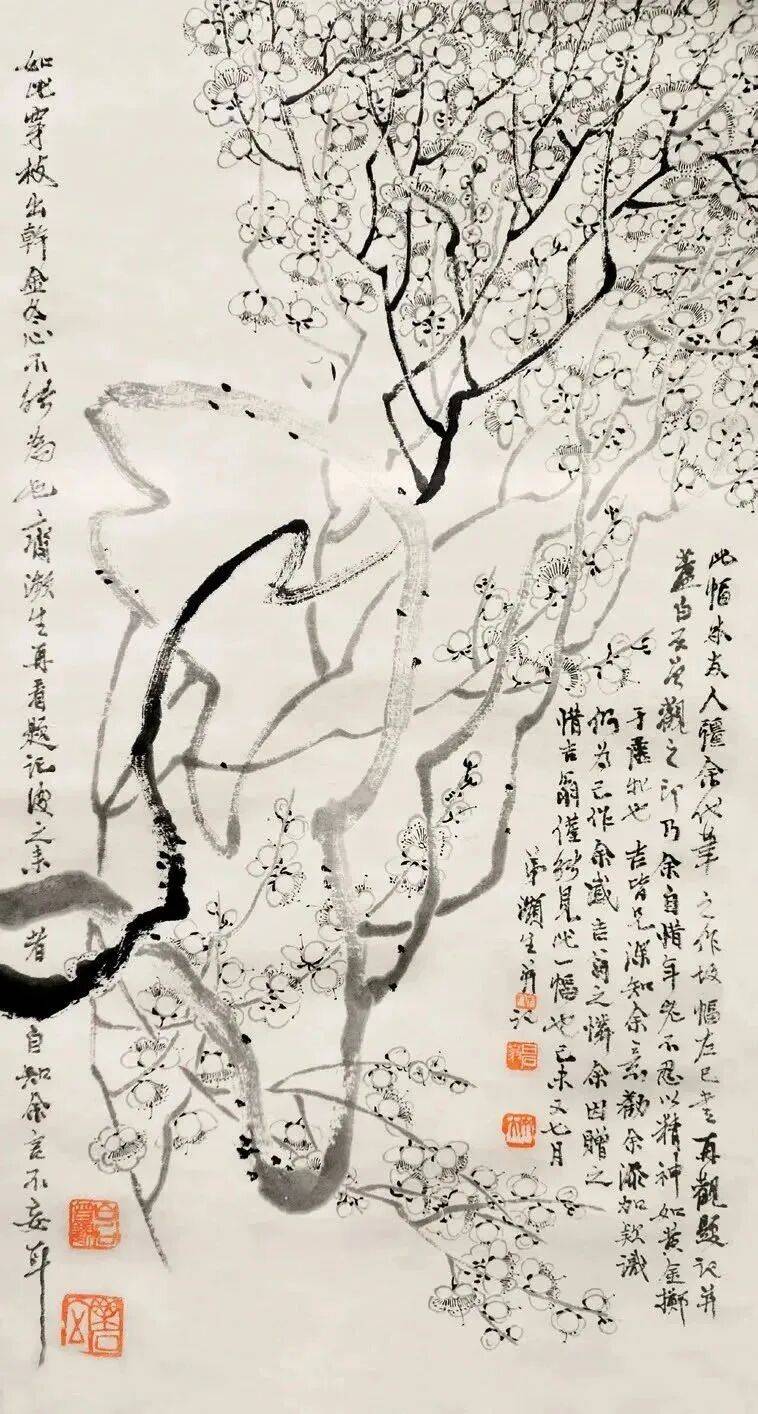 此幅本友人彊余代筆之作故幅左已書再觀題記并
蓋印天黃觀之即乃余自惜年老不忍以精神如黃金擲
于虛牝也吉皆兄深知余意勸余添加款識
仍為己作余感吉翁之憐余因贈之
惜吉翁僅能見此一幅也己未又七月
弟瀕生并記
如此穿枝出幹金冬心不能為也齊瀕生再看題記後之來者自知余言不妄耳